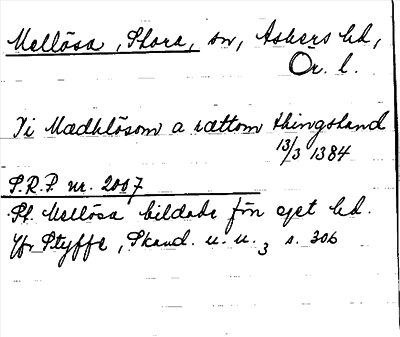 Mellösa, Stora, sn, Askers hd,
Ör. l.
Ji Mædhlösom a rættom thingsland
13/3 1384
S.R.P. nr. 2007
St. Mellösa bildade förr eget hd.
Jfr Styffe, Skand. u. u. 3 s. 306